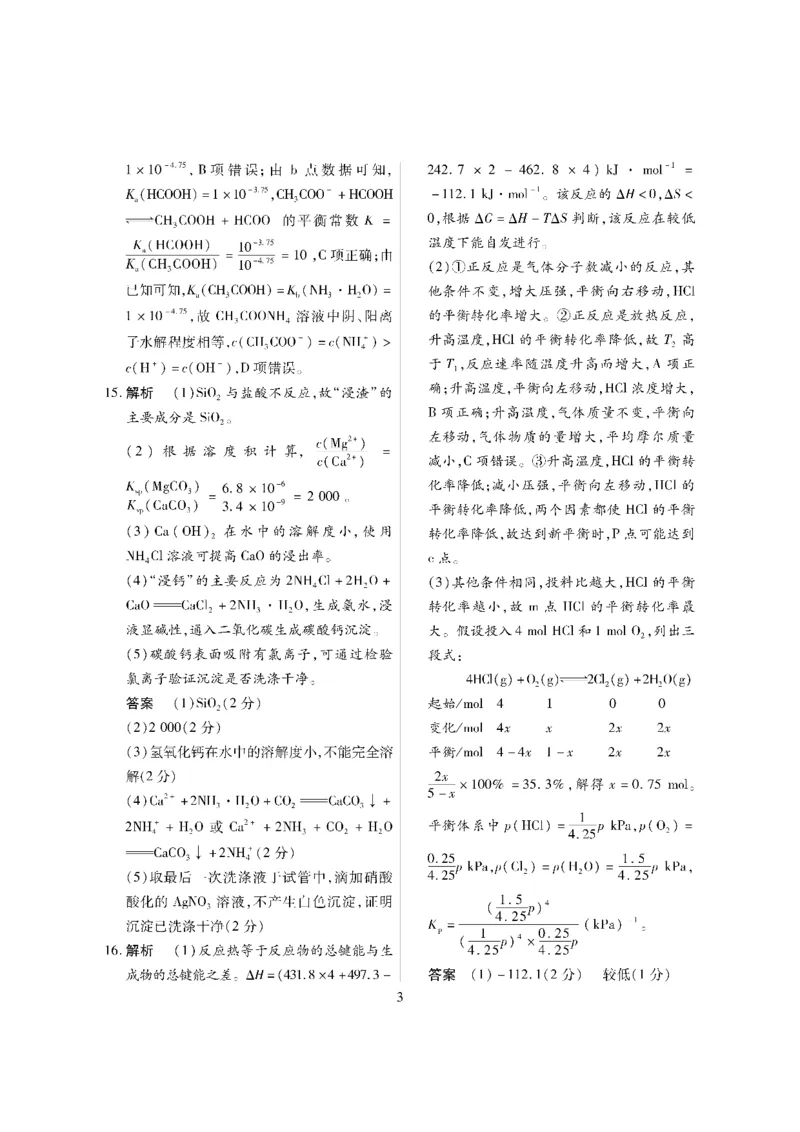 1×10⁻⁴·⁷⁵, B项错误;由 b 点数据可知,
Kₐ(HCOOH)=1×10⁻³·⁷⁵,CH₃COO⁻+HCOOH
⇌CH₃COOH + HCOO 的平衡常数 K =
Kₐ(HCOOH)/Kₐ(CH₃COOH) = 10⁻³·⁷⁵/10⁻⁴·⁷⁵ = 10 ,C项正确;由
已知可知,Kₐ(CH₃COOH)=K_b(NH₃·H₂O)=
1×10⁻⁴·⁷⁵,故 CH₃COONH₄ 溶液中阴、阳离
子水解程度相等,c(CH₃COO⁻)=c(NH₄⁺)>
c(H⁺)=c(OH⁻),D项错误。
15. 解析 (1)SiO₂ 与盐酸不反应,故“浸渣”的
主要成分是 SiO₂。
(2) 根据溶度积计算, c(Mg²⁺)/c(Ca²⁺) =
K_sp(MgCO₃)/K_sp(CaCO₃) = 6.8×10⁻⁶/3.4×10⁻⁹ = 2 000 。
(3) Ca(OH)₂ 在水中的溶解度小,使用
NH₄Cl溶液可提高CaO的浸出率。
(4)“浸钙”的主要反应为2NH₄Cl+2H₂O+
CaO══CaCl₂+2NH₃·H₂O,生成氨水,浸
液显碱性,通入二氧化碳生成碳酸钙沉淀。
(5)碳酸钙表面吸附有氯离子,可通过检验
氯离子验证沉淀是否洗涤干净。
答案 (1)SiO₂(2分)
(2)2 000(2分)
(3)氢氧化钙在水中的溶解度小,不能完全溶
解(2分)
(4)Ca²⁺+2NH₃·H₂O+CO₂══CaCO₃↓+
2NH₄⁺+H₂O 或 Ca²⁺+2NH₃+CO₂+H₂O
══CaCO₃↓+2NH₄⁺(2分)
(5)取最后一次洗涤液于试管中,滴加硝酸
酸化的 AgNO₃ 溶液,不产生白色沉淀,证明
沉淀已洗涤干净(2分)
16. 解析 (1)反应热等于反应物的总键能与生
成物的总键能之差。ΔH=(431.8×4+497.3-
242.7 × 2 - 462.8 × 4) kJ · mol⁻¹ =
-112.1 kJ·mol⁻¹。该反应的 ΔH<0,ΔS<
0,根据 ΔG=ΔH-TΔS 判断,该反应在较低
温度下能自发进行。
(2)①正反应是气体分子数减小的反应,其
他条件不变,增大压强,平衡向右移动,HCl
的平衡转化率增大。②正反应是放热反应,
升高温度,HCl的平衡转化率降低,故 T₂ 高
于 T₁,反应速率随温度升高而增大,A项正
确;升高温度,平衡向左移动,HCl浓度增大,
B项正确;升高温度,气体质量不变,平衡向
左移动,气体物质的量增大,平均摩尔质量
减小,C项错误。③升高温度,HCl的平衡转
化率降低;减小压强,平衡向左移动,HCl的
平衡转化率降低,两个因素都使HCl的平衡
转化率降低,故达到新平衡时,P点可能达到
c点。
(3)其他条件相同,投料比越大,HCl的平衡
转化率越小,故 m 点 HCl 的平衡转化率最
大。假设投入4 mol HCl和1 mol O₂,列出三
段式:
4HCl(g)+O₂(g)⇌2Cl₂(g)+2H₂O(g)
起始/mol 4 1 0 0
变化/mol 4x x 2x 2x
平衡/mol 4-4x 1-x 2x 2x
2x/(5-x)×100% =35.3%,解得 x=0.75 mol。
平衡体系中 p(HCl)=1/4.25 p kPa,p(O₂)=
0.25/4.25 p kPa,p(Cl₂)=p(H₂O)=1.5/4.25 p kPa,
K_p=(1.5/4.25 p)⁴/((1/4.25 p)⁴×0.25/4.25 p) (kPa) ¹。
答案 (1)-112.1(2分) 较低(1分)
3